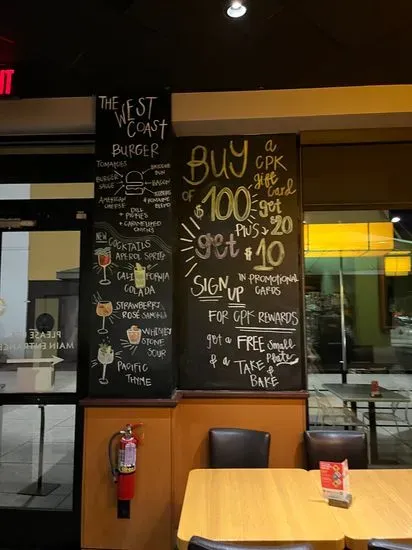 THE WEST COAST
BURGER
TOMATOES
BURGER SAUCE
AMERICAN CHEESE
BRIOCHE BUN
BACON
ROMAINE BLEND
DILL PICKLES
+ CARAMELIZED ONIONS
NEW
COCKTAILS
APEROL SPRITZ
CALIFORNIA COLADA
STRAWBERRY ROSÉ SANGRIA
WHISKEY STONE SOUR
PACIFIC THYME
BUY a
CPK
gift card
OF $100 get
PLUS $20
get $10
IN PROMOTIONAL CARDS
SIGN UP
FOR CPK REWARDS
get a FREE small plate
& a TAKE & BAKE
PLEASE
MAIN ENTRANCE